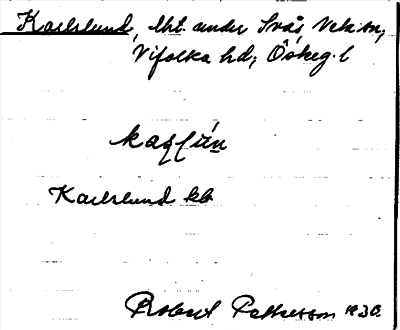 Karlslund, lht. under Svås, Veta sn,
Vifolka hd, Östeg. l
Karlslund kb
Robert Pettersson 1930.